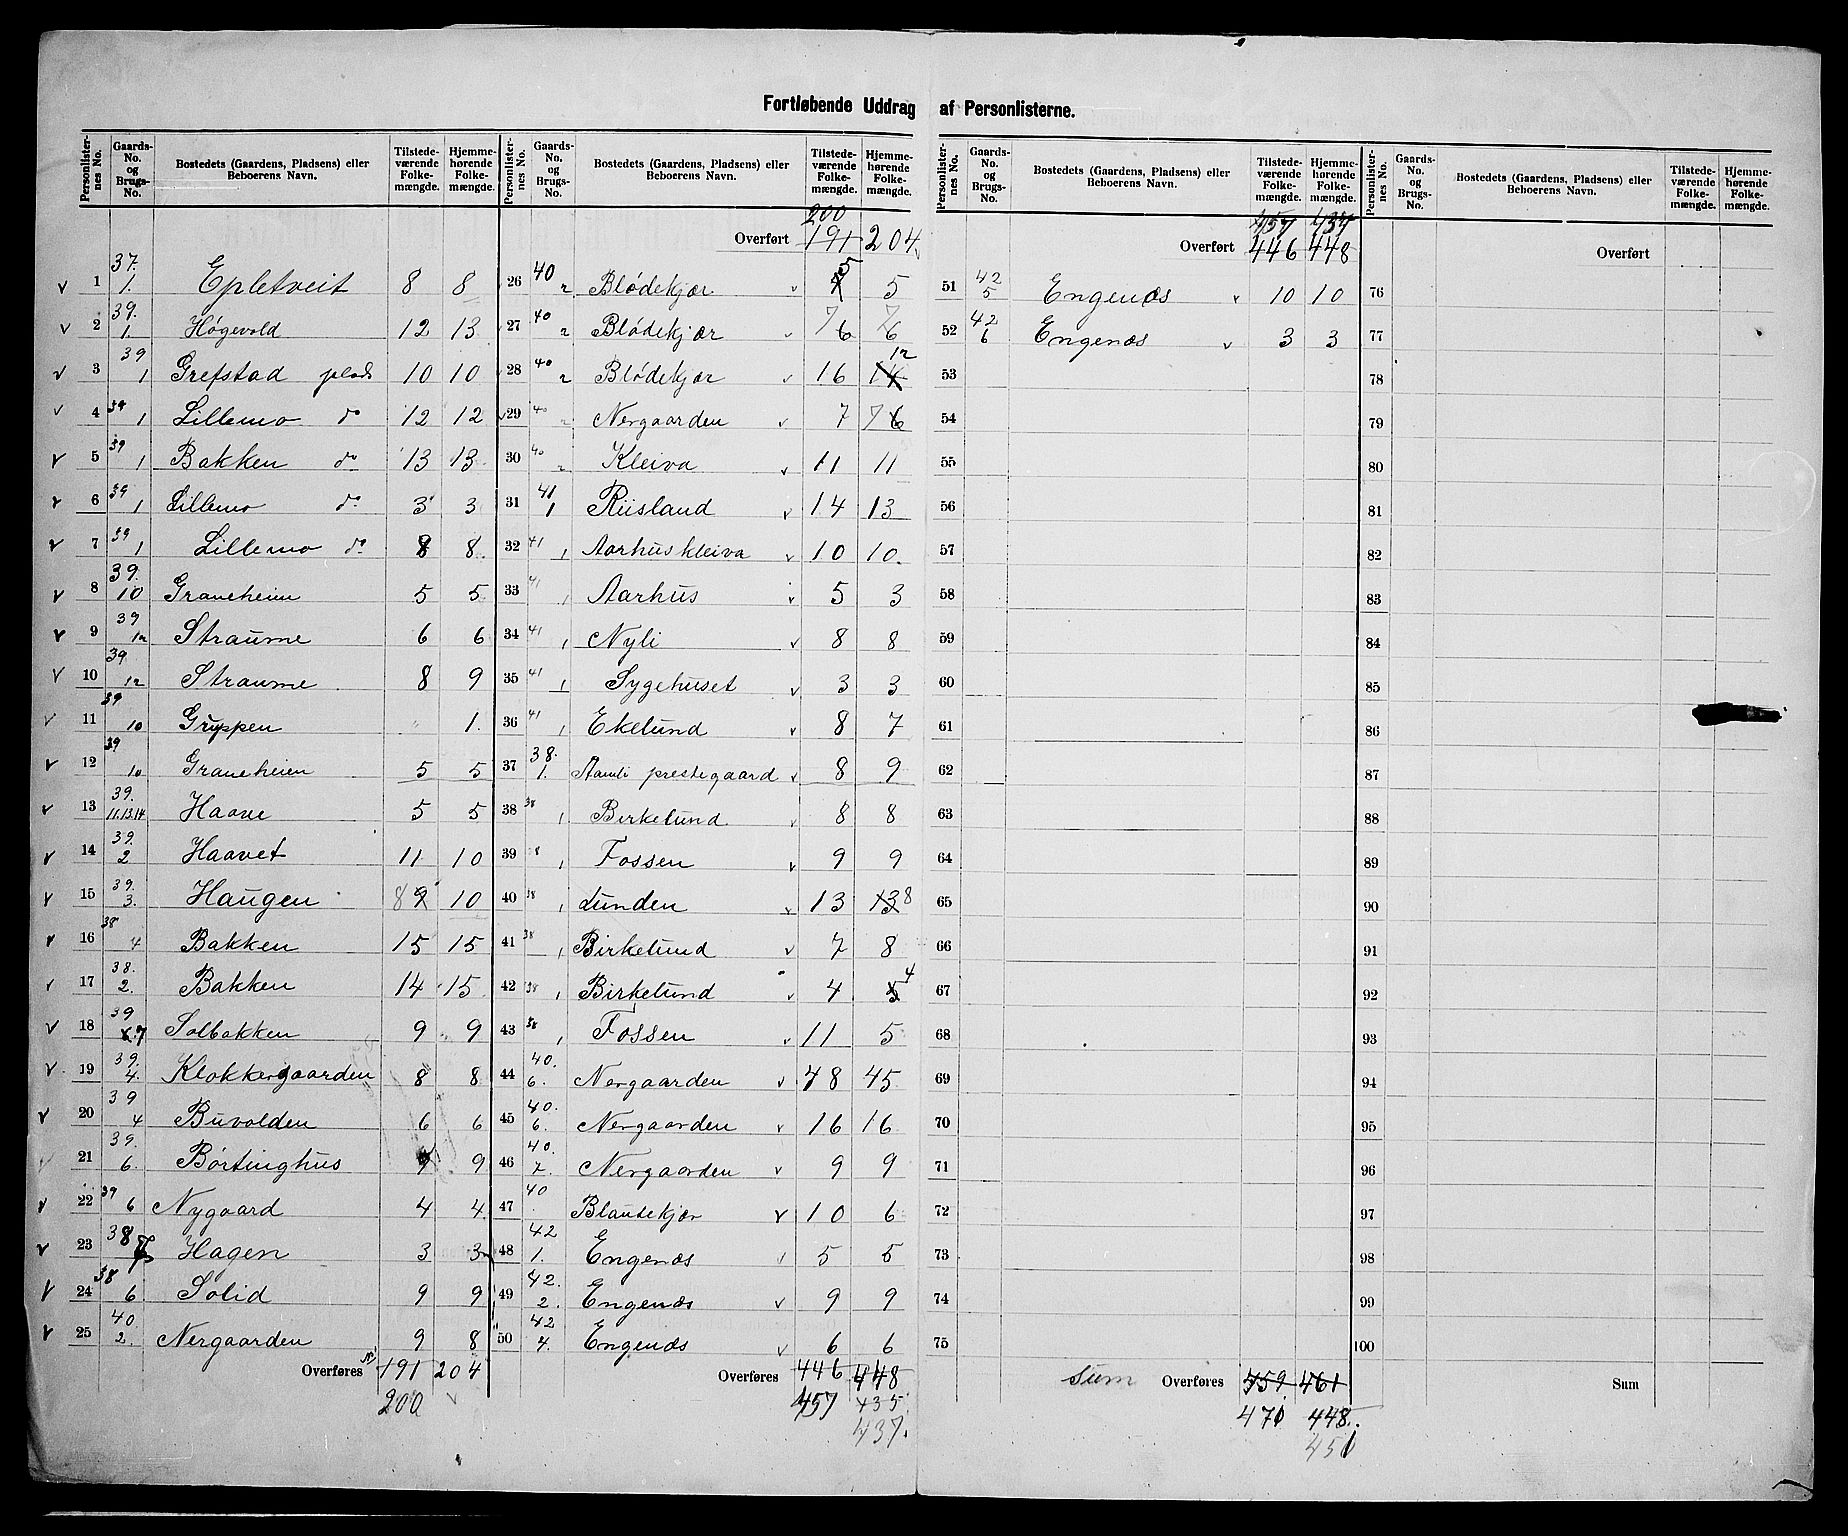 Fortløbende Uddrag af Personlisterne.
Personlister-nes No. Gaards-No. og Brugs-No. Bostedets (Gaardens, Pladsens) eller Beboerens Navn. Tilstede-værende Folke-mængde. Hjemme-hørende Folke-mængde.
1 37. 1. Epletveit 8 8
2 39. 1. Høgevold 12 13
3 39 1 Grefstad plads 10 10
4 39 1 Lillemo do 12 12
5 39 1 Bakken do 13 13
6 39 1 Lillemo do 3 3
7 39 1 Lillemo do 8 8
8 39. 10 Graneheien 5 5
9 39 12 Straume 6 6
10 39 12 Straume 8 9
11 39 10 Gruppen " 1.
12 39 10 Graneheien 5 5
13 39. 11.13.14 Haave 5 5
14 39. 2 Haavet 11 10
15 39. 3. Haugen 8 9 10
16 38 4 Bakken 15 15
17 38. 2. Bakken 14 15
18 39 7 Solbakken 9 9
19 39. 4. Klokkergaarden 8 8
20 39 4 Buvolden 6 6
21 39. 6. Børtinghus 9 9
22 39 6 Nygaard 4 4
23 38 Hagen 3 3
24 38 6 Solid 9 9
25 40 2. Nergaarden 9 8
Overføres 191 204
200
Personlister-nes No. Gaards-No. og Brugs-No. Bostedets (Gaardens, Pladsens) eller Beboerens Navn. Tilstede-værende Folke-mængde. Hjemme-hørende Folke-mængde.
200
Overført 191 204
26 40 2 Blødekjær 5 5
27 40 2 Blødekjær 7 6 7 6
28 40 2 Blødekjær 16 12 14
29 40 2 Nergaarden 7 7 6
30 40 2 Kleiva 11 11
31 41 1 Riisland 14 13
32 41 1 Aarhuskleiva 10 10.
33 41 1 Aarhus 5 3
34 41 1 Nyli 8 8
35 41 1 Sygehuset 3 3
36 41 1 Ekelund 8 7
37 38. 1. Aamli prestegaard 8 9
38 38 1 Birkelund 8 8
39 38 1 Fossen 9 9
40 38 1 Lunden 13 13 8
41 38 1 Birkelund 7 8
42 38 1 Birkelund 4 5 4
43 38 1 Fossen 11 5
44 40. 6. Nergaarden 48 45
45 40. 6. Nergaarden 16 16
46 40. 7. Nergaarden 9 9
47 40 Blautekjær 10 6
48 42 1. Engenæs 5 5
49 42. 2. Engenæs 9 9
50 42 4. Engenæs 6 6
Overføres 446 448
457 435
437.
Personlister-nes No. Gaards-No. og Brugs-No. Bostedets (Gaardens, Pladsens) eller Beboerens Navn. Tilstede-værende Folke-mængde. Hjemme-hørende Folke-mængde.
457 437
Overført 446 448
51 42 5 Engenæs 10 10
52 42 6 Engenæs 3 3
53
54
55
56
57
58
59
60
61
62
63
64
65
66
67
68
69
70
71
72
73
74
75
Sum Overføres 459. 461
470 448.
450
Personlister-nes No. Gaards-No. og Brugs-No. Bostedets (Gaardens, Pladsens) eller Beboerens Navn. Tilstede-værende Folke-mængde. Hjemme-hørende Folke-mængde.
Overført
76
77
78
79
80
81
82
83
84
85
86
87
88
89
90
91
92
93
94
95
96
97
98
99
100
Sum